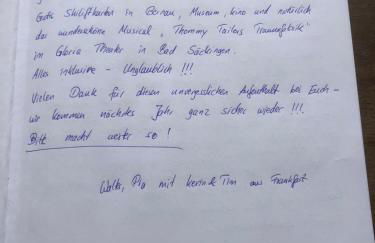 Gute Skiliftkarten in Bernau, Museum, Kino und natürlich
das wunderschöne Musical "Thommy Tailors Traumfabrik"
im Gloria Theater in Bad Säckingen.
Alles inklusive - Unglaublich !!!
Vielen Dank für diesen unvergesslichen Aufenthalt bei Euch -
wir kommen nächstes Jahr ganz sicher wieder !!!
Bitte macht weiter so !
Pia mit Kevin & Tim aus Frankfurt